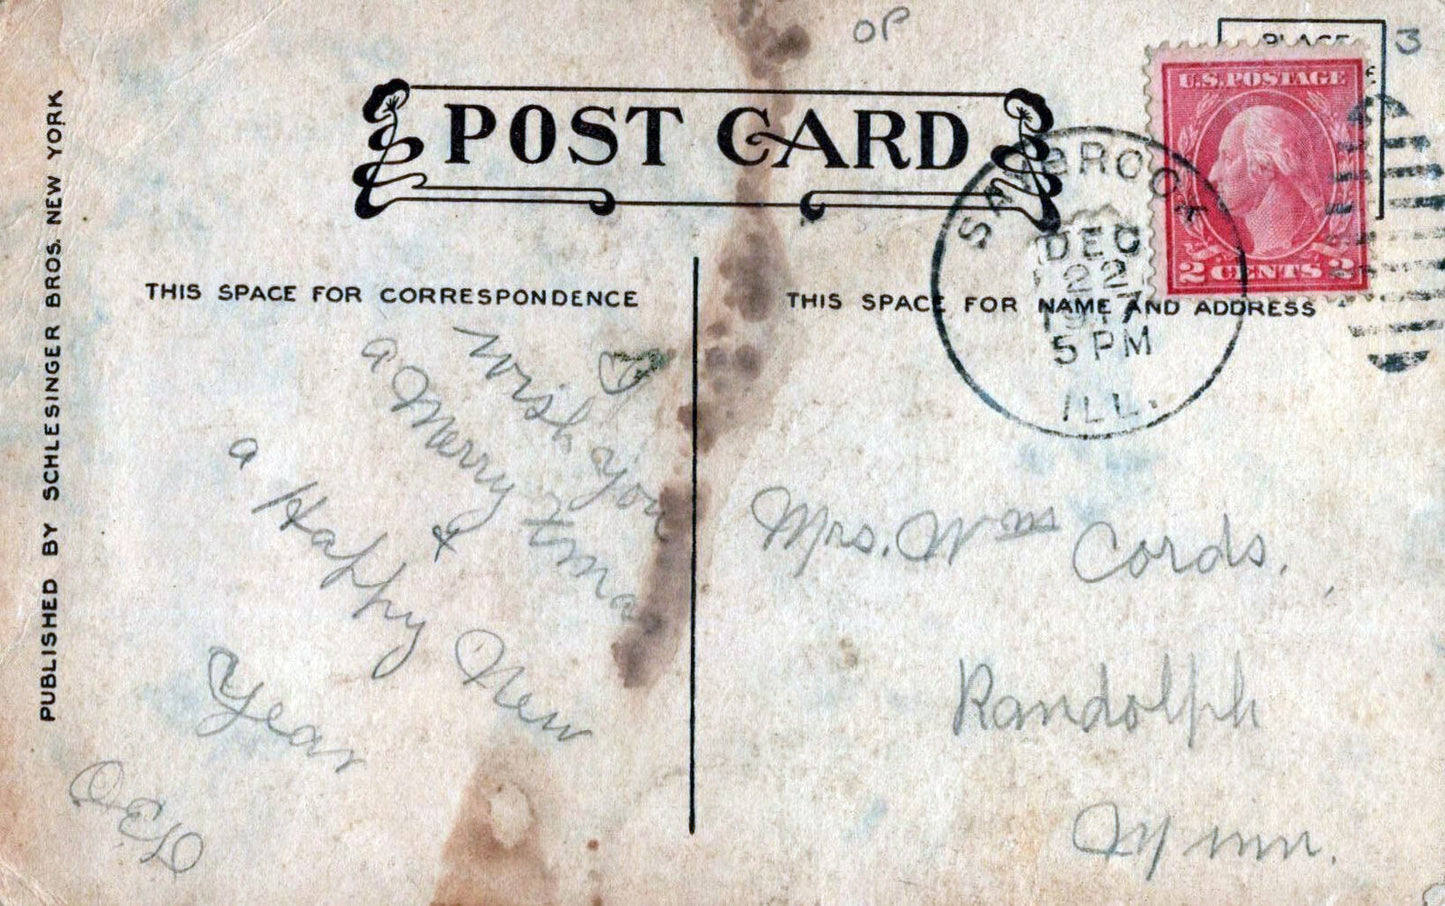 OP
3
PLACE
POST CARD
U.S. POSTAGE
2 CENTS 2
DEC
22
1917
5 PM
ILL.
THIS SPACE FOR CORRESPONDENCE
THIS SPACE FOR NAME AND ADDRESS
I
wish you
a Merry Xmas
&
a Happy New
Year
Mrs. Wm Cords.
Randolph
Minn.
PUBLISHED BY SCHLESINGER BROS. NEW YORK